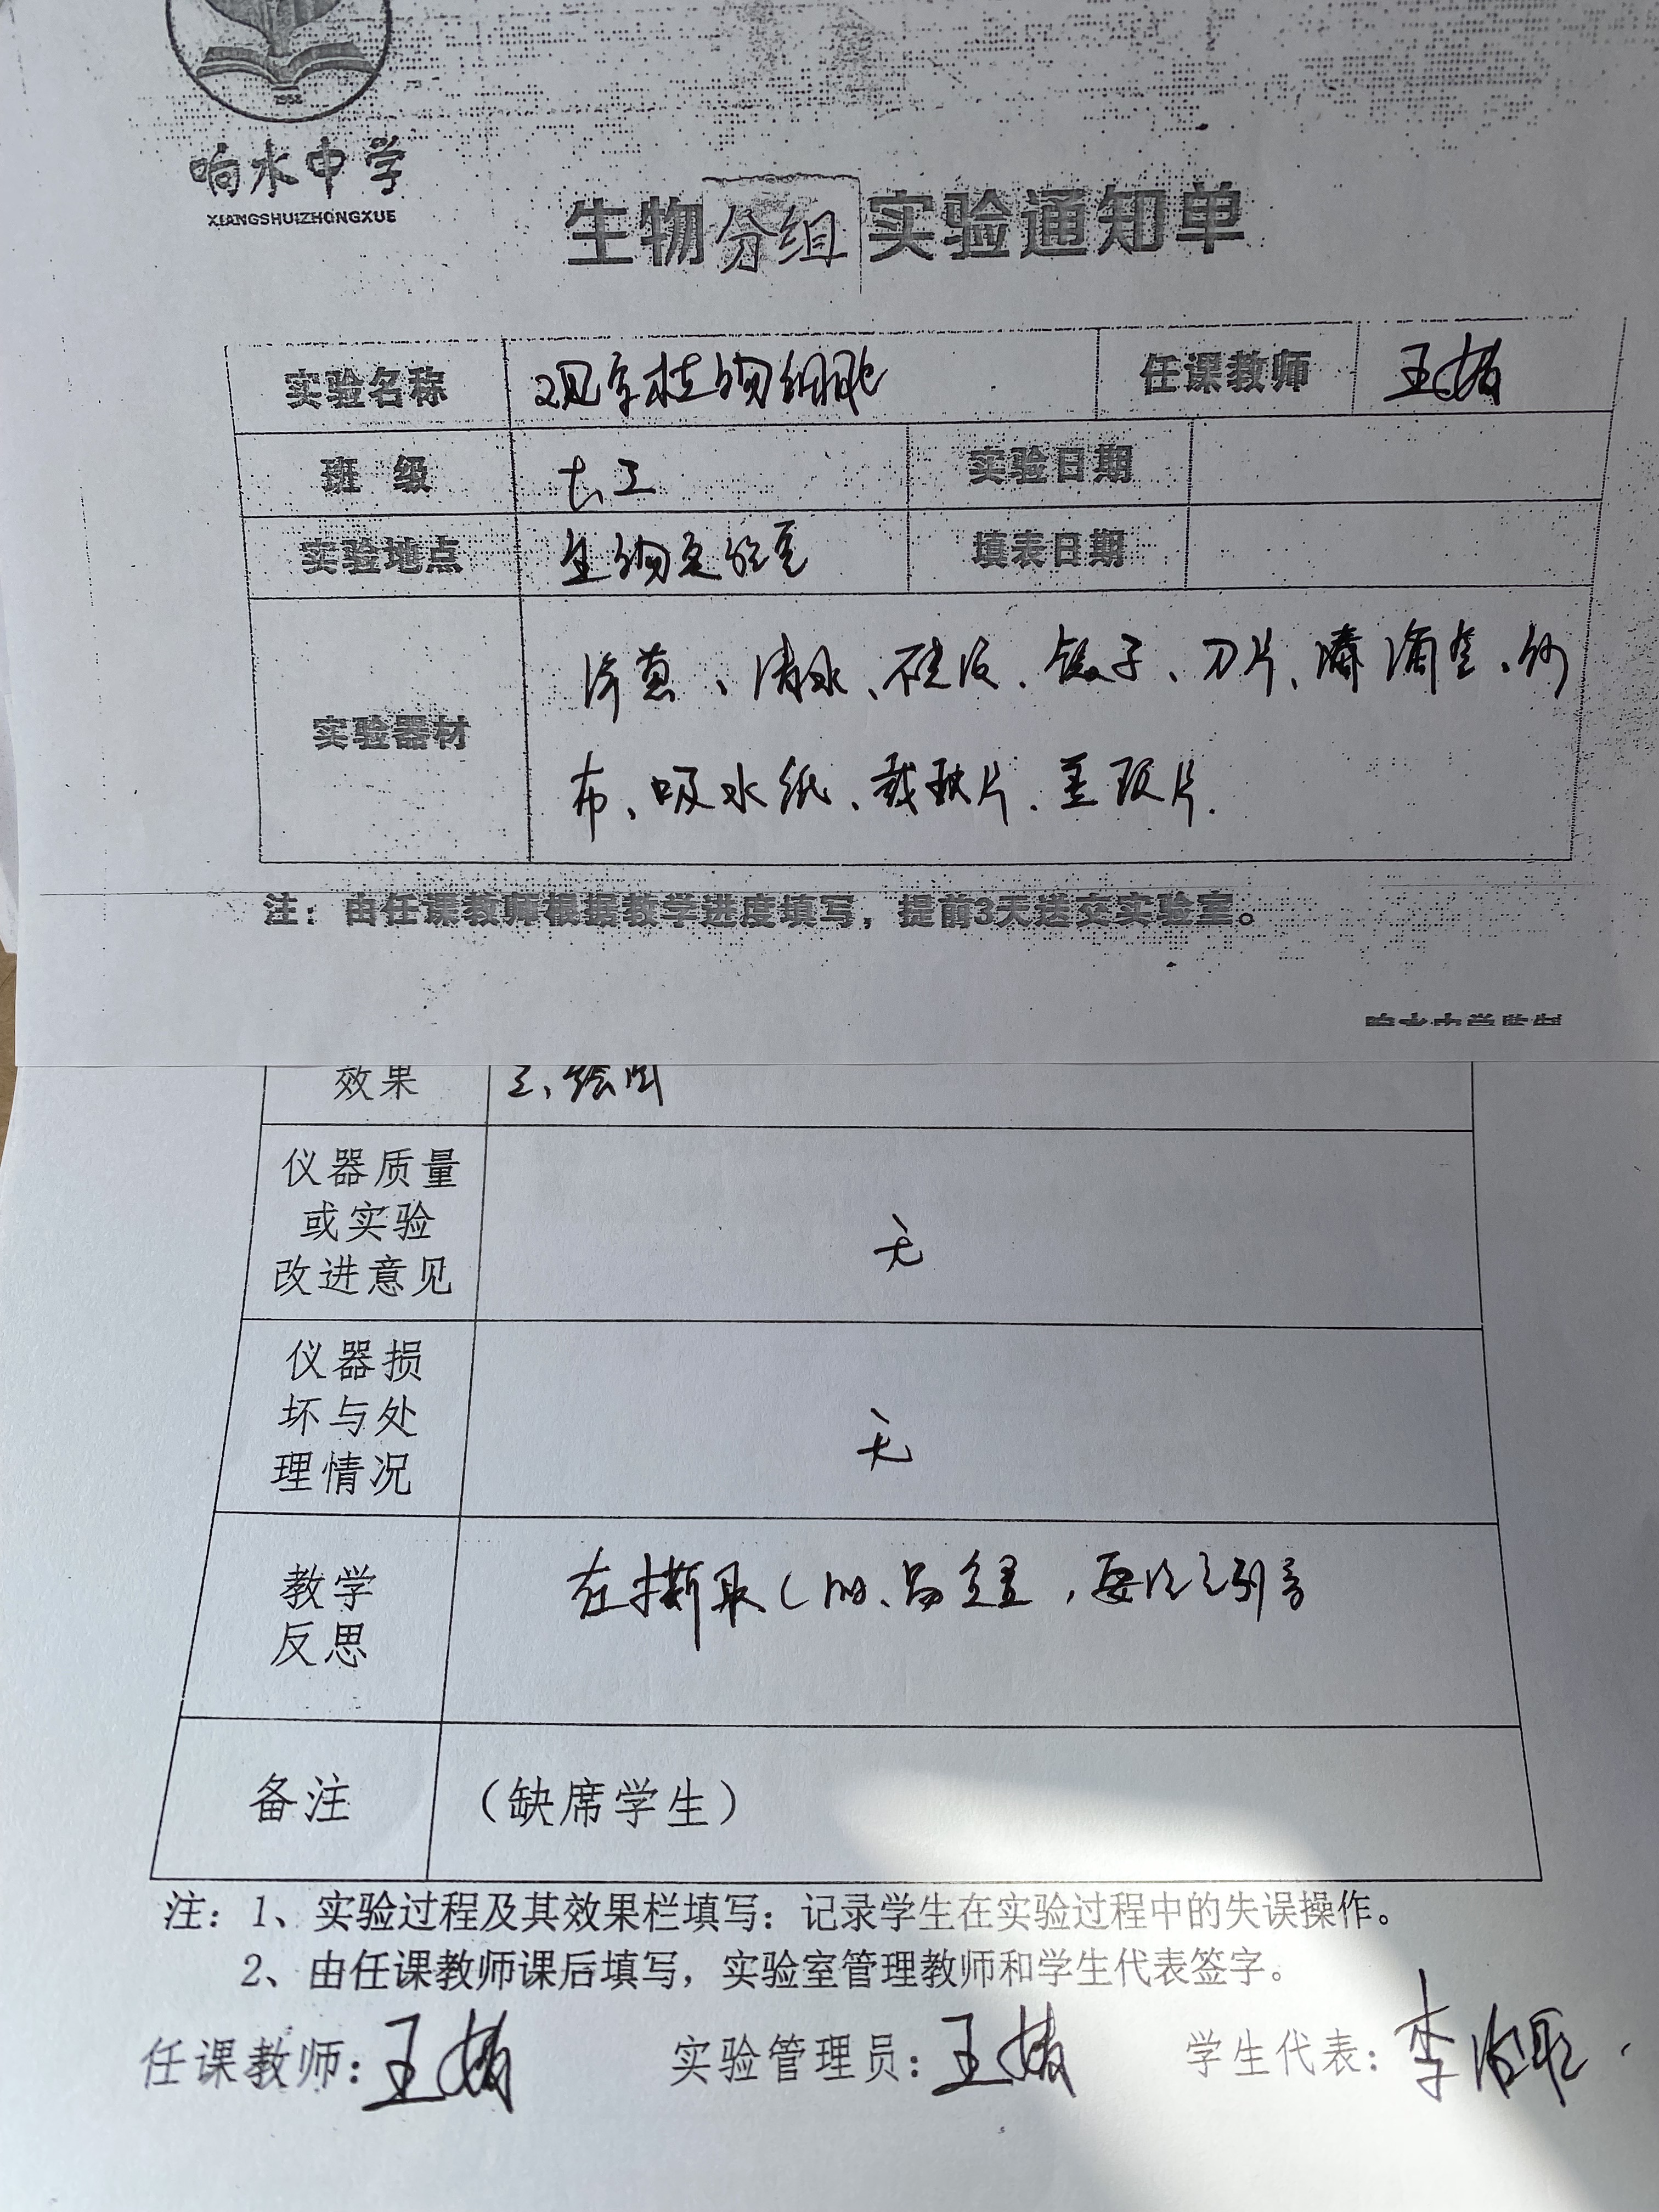 1958
响水中学
XIANGSHUIZHONGXUE
生物分组实验通知单
实验名称 观察植物细胞 任课教师 王
班 级 七. 实验日期
实验地点 生物实验室 填表日期
实验器材 洋葱、清水、碘液、镊子、刀片、滴管、纱
布、吸水纸、载玻片、盖玻片.
注：由任课教师根据教学进度填写，提前3天送交实验室。
响水中学监制
效果 3、绘图
仪器质量
或实验
改进意见 无
仪器损
坏与处
理情况 无
教学
反思 在撕取时、易 ，要注意引
备注 （缺席学生）
注：1、实验过程及其效果栏填写：记录学生在实验过程中的失误操作。
2、由任课教师课后填写，实验室管理教师和学生代表签字。
任课教师：王 实验管理员：王 学生代表：李